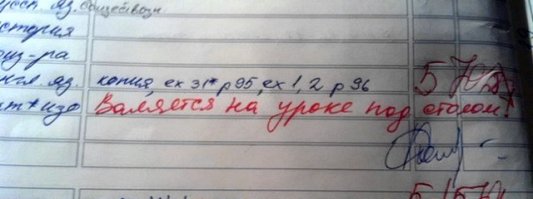 яз. обществозн
история
физ-ра
англ. яз. копия, ex 31* p 95, ex 1, 2 p 96 5
лит + изо Валяется на уроке под столом!
5